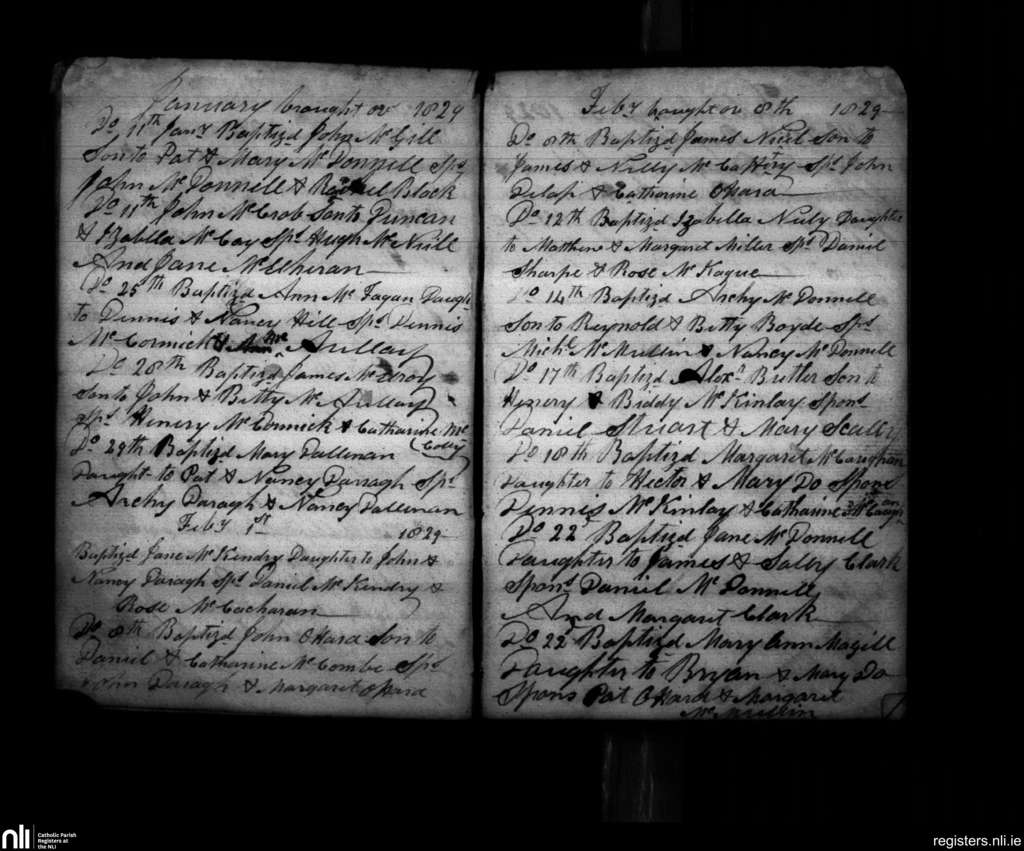 January brought ov 1829
Do. 11th Jany Baptizd John McGill
Son to Pat & Mary McDonnell Sps
John McDonnell & Rachel Black
Do 11th John McCrob Son to Duncan
& Izabella McCay Sps Hugh McNeill
And Jane McElheran
Do 25th Baptizd Ann McFagan Daugh
to Dennis & Nancy Hill Sps Dennis
McCormick & Ann Mc Aullay
Do 28th Baptizd James
Son to John & Betty McAullay
Sps Henery McCormick & Catharine Mc
Do 29th Baptizd Mary Dallinan
Daught to Pat & Nancy Darragh Sps
Archy Daragh & Nancy Dallinan
Feby 1st 1829
Baptizd Jane McKendry Daughter to John &
Nancy Daragh Sps Daniel McKendry &
Rose McCocharan
Do 8th Baptizd John OHara Son to
Daniel & Catharine McCombe Sps
John Daragh & Margaret OHara
Feby bought ov 8th 1829
Do 8th Baptizd James Niell Son to
James & Nilly McCaffery Sps John
Delap & Catharine OHara
Do 12th Baptizd Izabella Neely Daughter
to Matthew & Margaret Miller Sps Daniel
Sharpe & Rose McKague
Do 14th Baptizd Archy McDonnell
Son to Reynold & Betty Boyde Sps
Michl McMullin & Nancy McDonnell
Do 17th Baptizd Alexr Butler Son to
Henery & Biddy McKinlay Spons
Daniel Stuart & Mary Scally
Do 18th Baptizd Margaret McCaughan
Daughter to Hictor & Mary Do Spons
Dennis McKinlay & Catharine McCaughan
Do 22d Baptizd Jane McDonnell
Daughter to James & Sally Clark
Spons Daniel McDonnell
And Margaret Clark
Do 22d Baptizd Mary Ann Magill
Daughter to Bryan & Mary Do
Spons Pat OHara & Margaret
McMullin
nli
Catholic Parish
Registers at
the NLI
registers.nli.ie